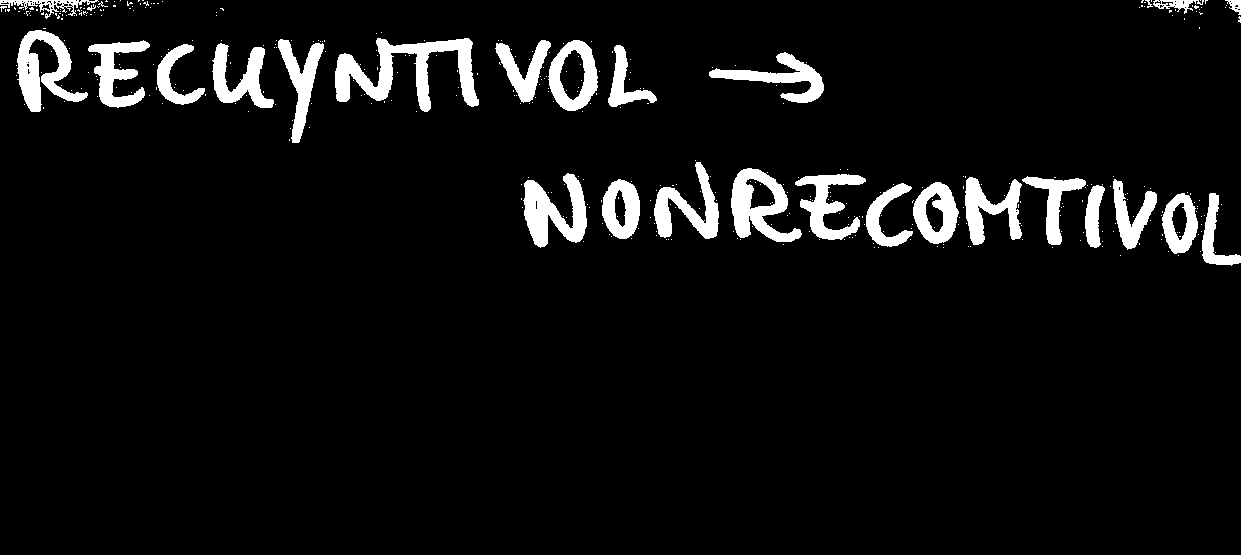 RECUYNTIVOL →
NONRECOMTIVOL